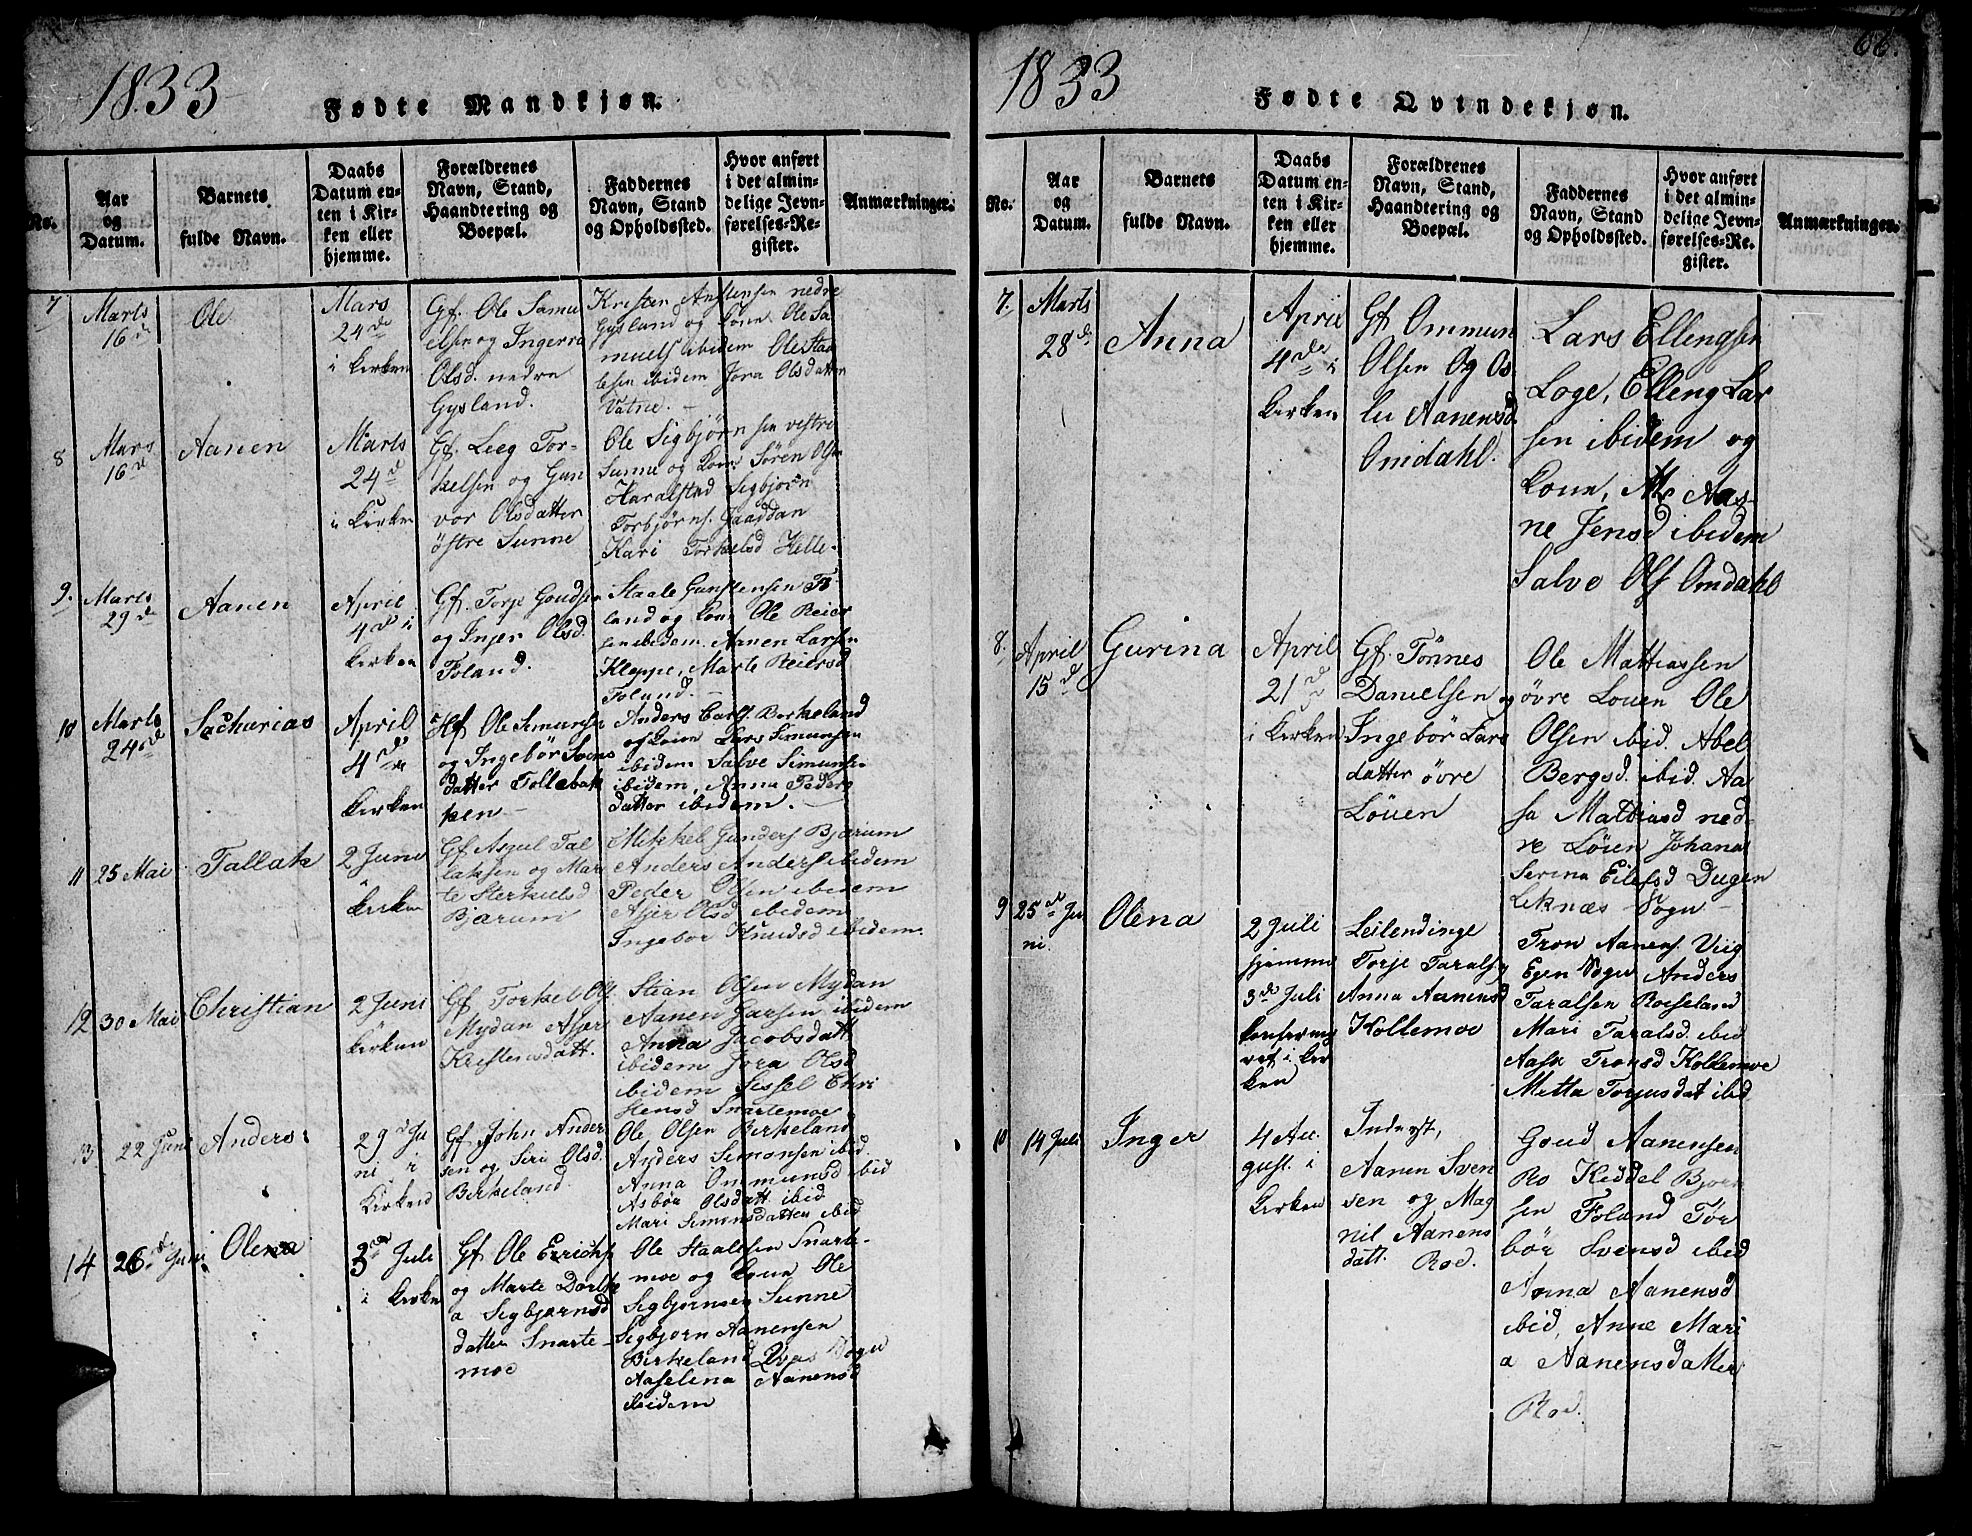 1833
Fødte Mandkjøn.
No.
Aar
og
Datum.
Barnets
fulde Navn.
Daabs
Datum en-
ten i Kir-
ken eller
hjemme.
Forældrenes
Navn, Stand,
Haandtering og
Boepæl.
Faddernes
Navn, Stand
og Opholdssted.
Hvor anført
i det almin-
delige Jevn-
førelses-Re-
gister.
Anmærkninger.
7
Marts
16 de
Ole
Mars
24 de
i kirken
Gf. Ole Samu
elsen og Ingerra
Olsd. nedre
Gysland.
Kristen Anstensen nedre
Gysland og kone Ole Sa
muels ibidem Ole Staa
lesen ibidem Jora Olsdatter
Vatne.
8
Mars
16 d
Aanen
Marts
24 d
i kirken
Gf. Leeg Tor-
kelsen og Gun
vor Olsdatter
östre Sunne
Ole Sigbjørnsen vestre
Sunne og kone Søren Olsen
Haralstad Sigbjørn
Torbjørns. Gaaddan
Kari Torkelsd Helle
9.
Marts
29 de
Aanen
April
4 d i
kirken
Gf. Torje Goudsen
og Injer Olsd.
Foland.
Staale Gunstensen Fo
land og kone Ole Reier
sen ibidem Aanen Larsen
Kleppe, Marte Reiersd
Foland.
10
Marts
24 de
Sacharias
April
4 de i
kirken
Hf Ole Simunsen
og Ingebör Svens
datter Tollebak
ken
Anders Carls. Birkeland
og kone Lars Simunsen
ibidem Salve Simuns.
ibidem, Anna Peders
datter ibidem.
11
25 Mai
Tallak
2 Juni
i
kirken
Gf Asgul Tal
laksen og Mar
te Sterkelsd
Bjærum
Mikkel Gunders Bjærum
Anders Anders ibidem
Peder Olsen ibidem
Asjer Olsd ibidem
Ingebor Knudsd ibidem.
12
30 Mai
Christian
2 Juni
i
kirken
Gf Torkel Ols
Mydan Asjer
Kristensdatt.
Stean Olsen Mydan
Aanen Larsen ibidem
Anna Jacobsdatt
ibidem Jora Olsd
ibidem Sissel Chri
stensd Snartemoe
13
22 Juni
Anders
29 d Ju
ni i
kirken
Gf John Ander
sen og Siri Olsd.
Birkeland
Ole Olsen Birkeland
Anders Simonsen ibid
Anna Ommunsd ibid
Asbør Olsdatt ibid
Mari Simonsdatter ibid
14
26 de Juni
Olena
3 de Juli
i kirken
Gf Ole Errichs
og Marte Dorthe
a Sigbjørnsd
datter Snarte-
moe
Ole Staalesen Snarte-
moe og kone Ole
Sigbjørnsen Sunne
Sigbjørn Aanensen
Birkeland Qvas Sogn
Aaselena Aanensd
ibidem
1833
66.
Fødte Qvindekjøn.
No.
Aar
og
Datum.
Barnets
fulde Navn.
Daabs
Datum en-
ten i Kir-
ken eller
hjemme.
Forældrenes
Navn, Stand,
Haandtering og
Boepæl.
Faddernes
Navn, Stand
og Opholdssted.
Hvor anført
i det almin-
delige Jevn-
førelses-Re-
gister.
Anmærkninger.
7.
Marts
28 d.
Anna
April
4 de i
kirken
Gf Ommun
Olsen og Os
lu Aanensd.
Omdahl.
Lars Ellengsen
Loge, Elleng Lar
sen ibidem og
kone, Aas-
ne Jensd ibidem
Salve Ols Omdahl
8.
April
15 d
Gurina
April
21 d
i kirken
Gf. Tønnes
Danielsen og
Ingebör Lars
datter övre
Löuen
Ole Mattiassen
övre Louen Ole
Olsen ibid. Abel
Bergsd. ibid. Aa
sa Matthiasd ned-
re Löuen Johana
Serina Eilefsd Dugan
Leknæs Sogn
9
25 d Ju
ni.
Olena
2 Juli
hjemme
3 de Juli
konfirme
ret i kir
ken
Leilendinge
Torje Taralsen
Anna Aanensd
Kollemoe
Tron Aanens. Viig
Egen Sogn Anders
Taralsen Roiseland
Mari Taralsd. ibid
Aasa Tronsd Kollemoe
Metta Torjusdat ibid
10
14 Juli
Inger
4 Au-
gust. i
kirken
Inderst,
Aanen Sven
sen og Mag
nil Aanens
datt. Roe.
Goud Aanensen
Ro Keddel Bjørn
sen Foland Tor
bör Svensd ibid
Anna Aanensd
ibid, Anne Mari
a Aanensdatter
Roe.